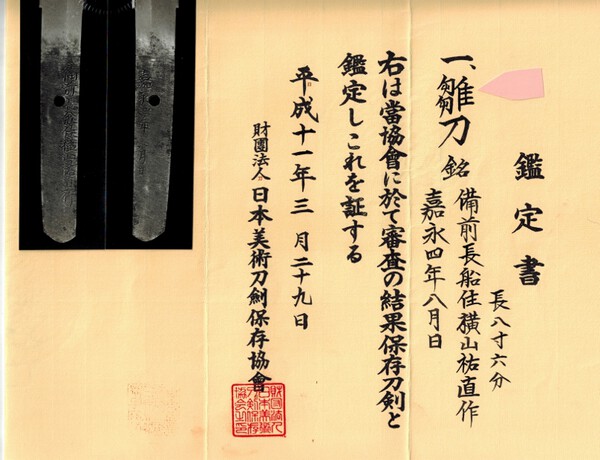 鑑定書
長八寸六分
一、雛刀 銘 備前長船住横山祐直作
嘉永四年八月日
右は當協會に於て審査の結果保存刀剣と
鑑定しこれを証する
平成十一年三月二十九日
財團法人日本美術刀剣保存協會
財團法人
日本美術
刀剣保存
協會之印